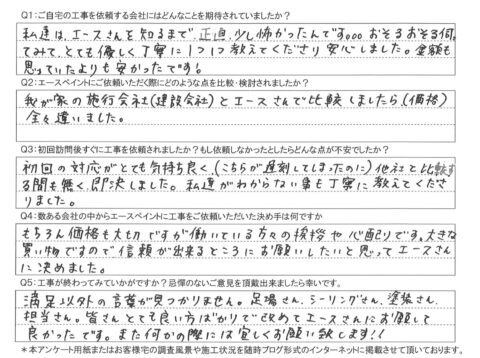 Q1:ご自宅の工事を依頼する会社にはどんなことを期待されていましたか?
私達は、エースさんを知るまで、正直、少し怖かったんです。。。おそるおそる伺っ
てみて、とても優しく丁寧に1つ1つ教えてくださり安心しました。金額も
思っていたよりも安かったです!
Q2:エースペイントにご依頼いただく際にどのような点を比較・検討されましたか?
我が家の施行会社(建設会社)とエースさんで比較しましたら、(価格)
全々違いました。
Q3:初回訪問後すぐに工事を依頼されましたか?もし依頼しなかったとしたらどんな点が不安でしたか?
初回の対応がとても気持ち良く、(こちらが遅刻してしまったのに)他社と比較す
る間も無く、即決しました。私達がわからない事も丁寧に教えてくださ
りました。
Q4:数ある会社の中からエースペイントに工事をご依頼いただいた決め手は何ですか
もちろん価格も大切ですが働いている方々の挨拶や心配りです。大きな
買い物ですので信頼が出来るところにお願いしたいと思ってエースさん
に決めました。
Q5:工事が終わってみていかがですか?忌憚のないご意見を頂戴出来ましたら幸いです。
満足以外の言葉が見つかりません。足場さん、シーリングさん、塗装さん、
担当さん。皆さんとても良い方ばかりで改めてエースさんにお願いして
良かったです。また何かの際には宜しくお願い致します!!
*本アンケート用紙またはお客様宅の調査風景や施工状況を随時ブログ形式のインターネットに掲載させて頂いております。